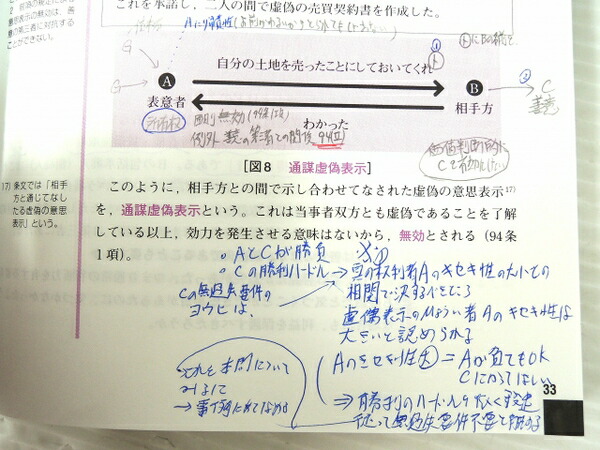 これを承諾し，二人の間で虚偽の売買契約書を作成した。
意思表示の無効は，善
意の第三者に対抗する
ことができない。
G
G
A
自分の土地を売ったことにしておいてくれ
B
C
善意
表意者
相手方
所有権
原則 無効(94条1項)
わかった
例外 善意の第三者との関係 94Ⅱ
価値判断的に
Cを有効にしたい
[図8 通謀虚偽表示]
17) 条文では「相手
方と通じてなし
たる虚偽の意思
表示」という。
このように，相手方との間で示し合わせてなされた虚偽の意思表示17)
を，通謀虚偽表示という。これは当事者双方とも虚偽であることを了解
している以上，効力を発生させる意味はないから，無効とされる（94条
1項）。
。AとCが勝負
。Cの勝利ハードル→真の権利者Aのキセキ性の大小での
相関で決するべきところ
Cの無過失要件の
ヨウヒは、
虚偽表示の
者Aのキセキ性は
大きいと認められる
Aのキセキ性大 = Aが負けてもOK
Cにかってほしい
これを本問について
みるに
→事例にあてはめる
⇒勝利のハードルを
設定
従って無過失要件不要で
33